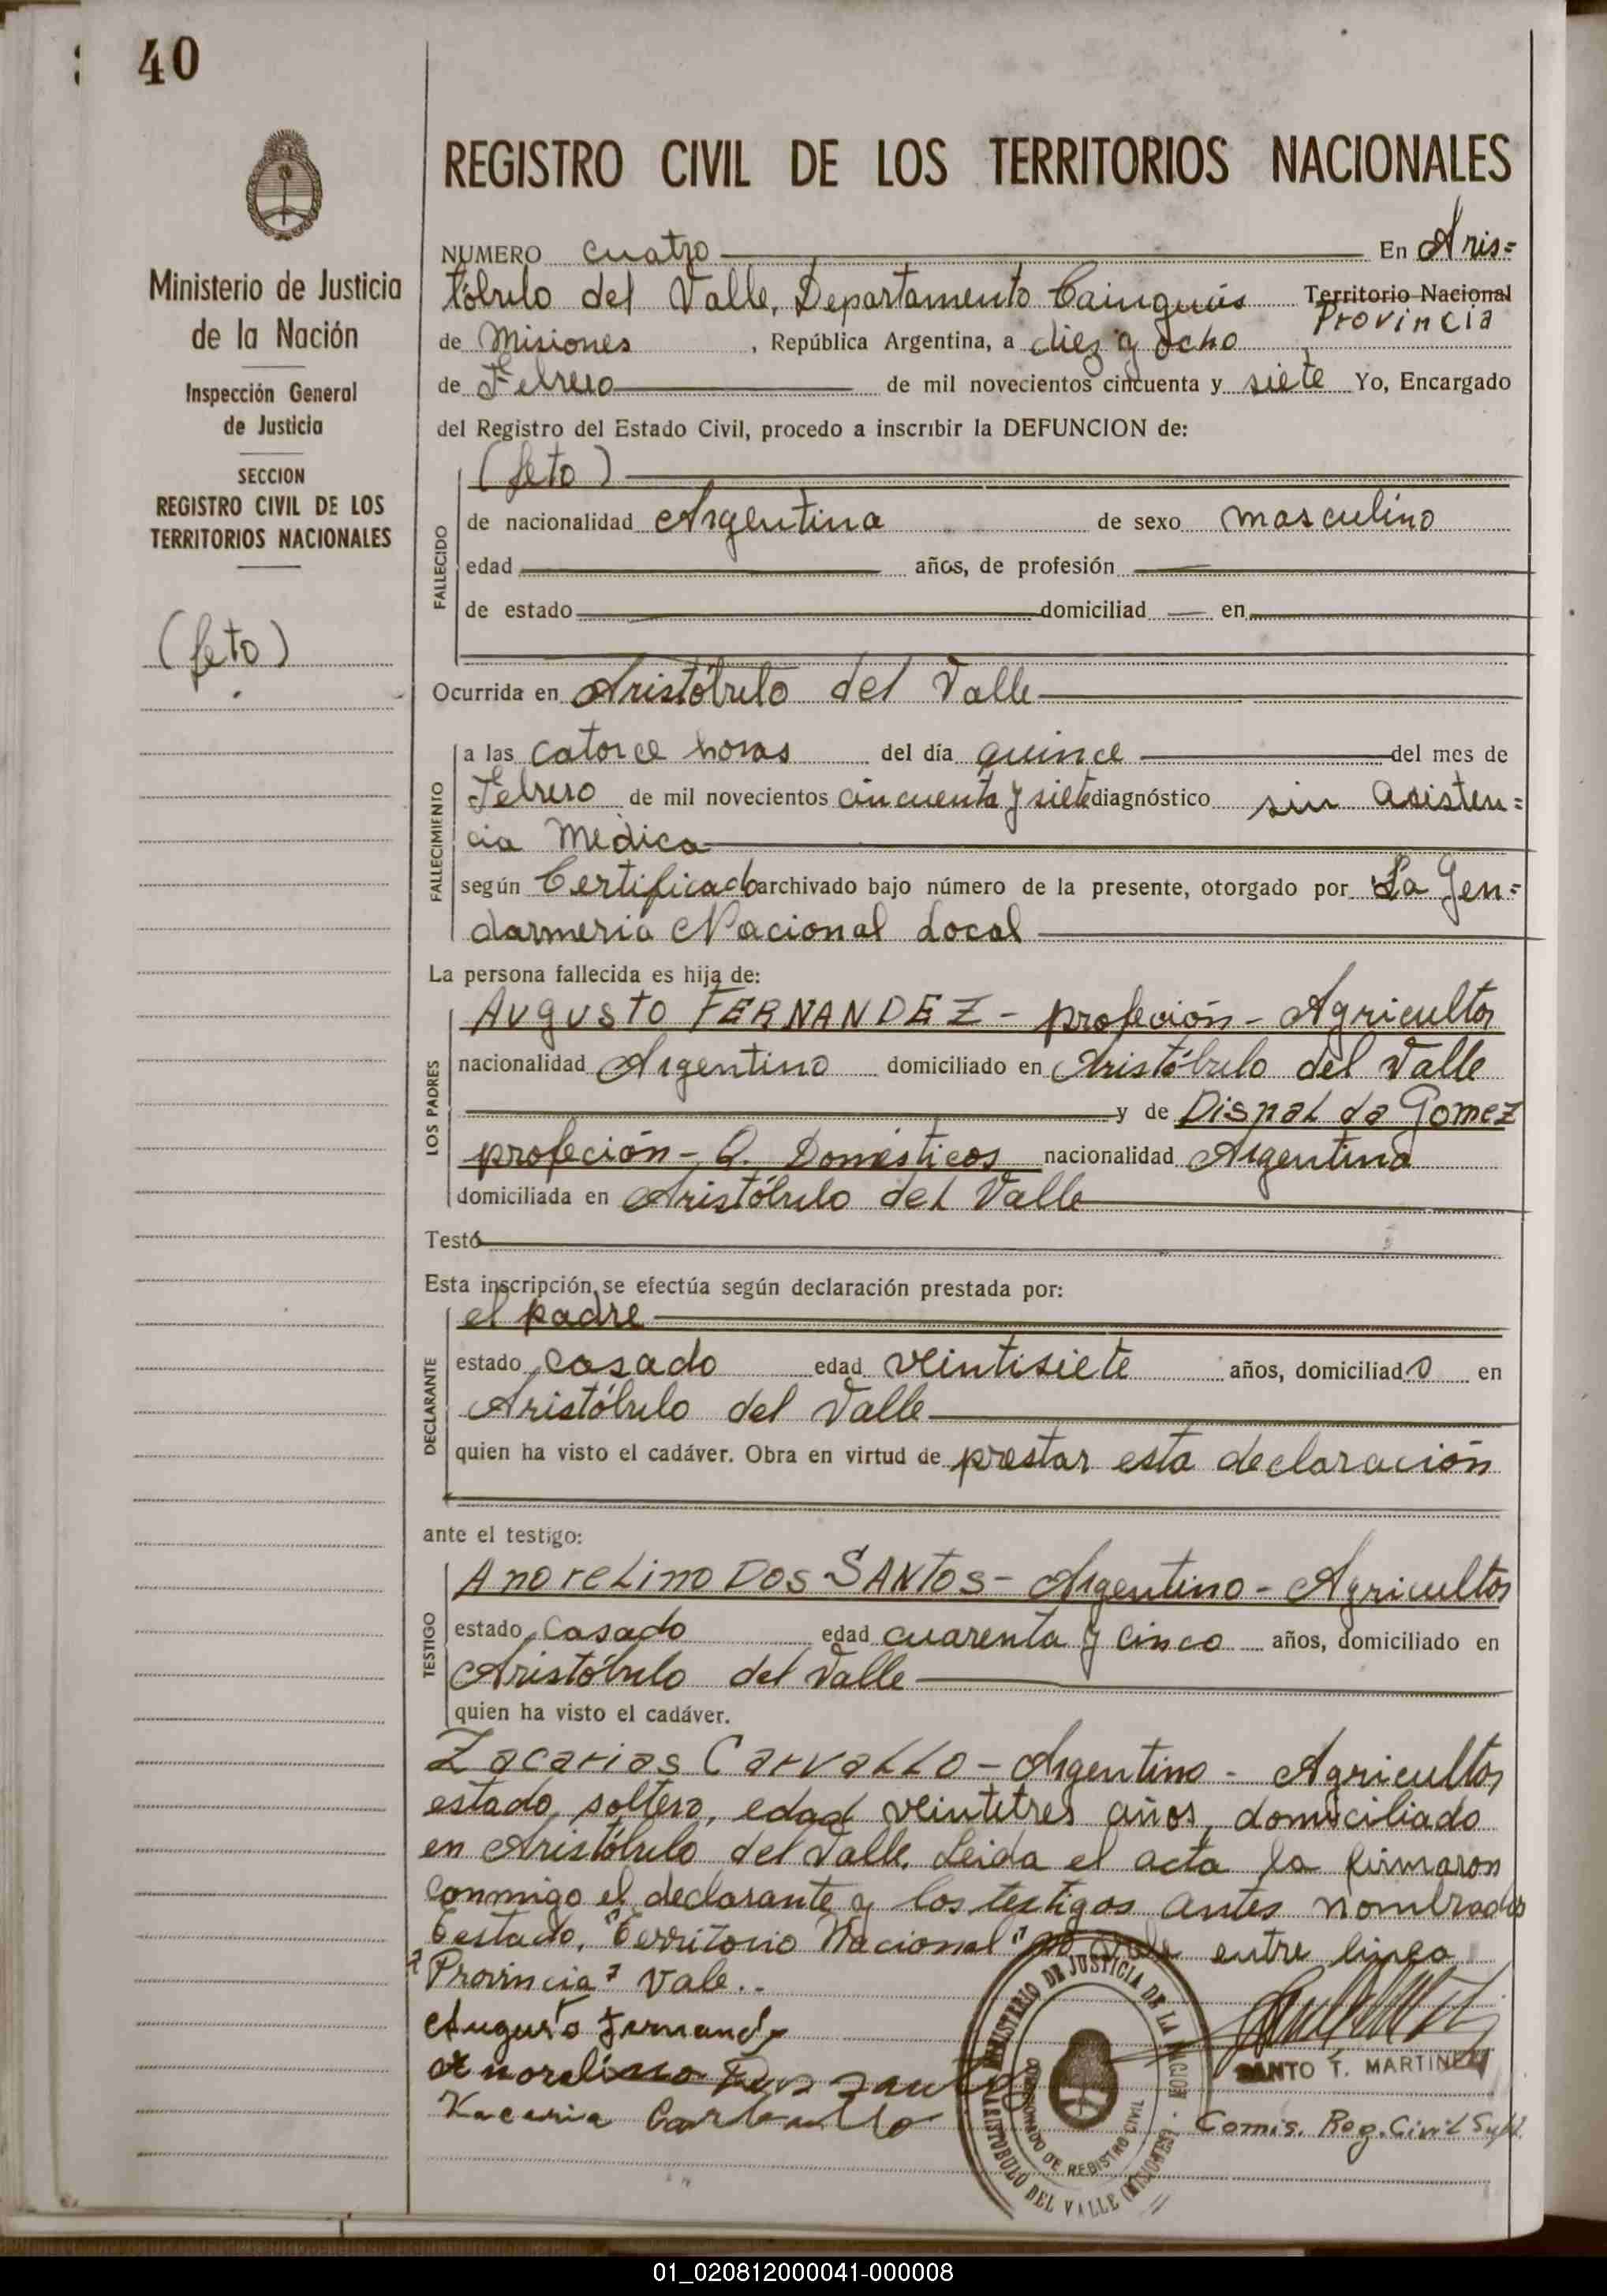 40
REGISTRO CIVIL DE LOS TERRITORIOS NACIONALES
Ministerio de Justicia
de la Nación
Inspección General
de Justicia
SECCION
REGISTRO CIVIL DE LOS
TERRITORIOS NACIONALES
(feto)
NUMERO cuatro En Aris=
tóbulo del Valle, Departamento Cainguás Territorio Nacional
Provincia
de Misiones, República Argentina, a diez y ocho
de Febrero de mil novecientos cincuenta y siete Yo, Encargado
del Registro del Estado Civil, procedo a inscribir la DEFUNCION de:
(feto)
FALLECIDO
de nacionalidad Argentina de sexo masculino
edad años, de profesión
de estado domiciliad en
Ocurrida en Aristóbulo del Valle
FALLECIMIENTO
a las catorce horas del día quince del mes de
Febrero de mil novecientos cincuenta y siete diagnóstico sin asisten=
cia Médica
según Certificado archivado bajo número de la presente, otorgado por La Gen=
darmeria Nacional Local
La persona fallecida es hija de:
LOS PADRES
AUGUSTO FERNANDEZ - profeción - Agricultor
nacionalidad Argentino domiciliado en Aristóbulo del Valle
y de Disnal da Gomez
profeción - Q. Domésticos nacionalidad Argentina
domiciliada en Aristóbulo del Valle
Testó
Esta inscripción se efectúa según declaración prestada por:
DECLARANTE
el padre
estado casado edad veintisiete años, domiciliado en
Aristóbulo del Valle
quien ha visto el cadáver. Obra en virtud de prestar esta declaración
ante el testigo:
TESTIGO
Anorelino Dos SANTOS - Argentino - Agricultor
estado casado edad cuarenta y cinco años, domiciliado en
Aristóbulo del Valle
quien ha visto el cadáver.
Zacarias Carvallo - Argentino - Agricultor
estado soltero, edad veintitres años, domiciliado
en Aristóbulo del Valle. Leida el acta la firmaron
conmigo el declarante y los testigos antes nombrados
Testado, "Territorio Nacional" no vale entre linea
"Provincia" vale..
Augusto Fernandez
Anorelino Dos Santos
Zacaria Carballo
MINISTERIO DE JUSTICIA DE LA NACION
REGISTRO CIVIL
ARISTOBULO DEL VALLE (MISIONES)
SANTO T. MARTINEZ
Comis. Reg. Civil
01_020812000041-000008